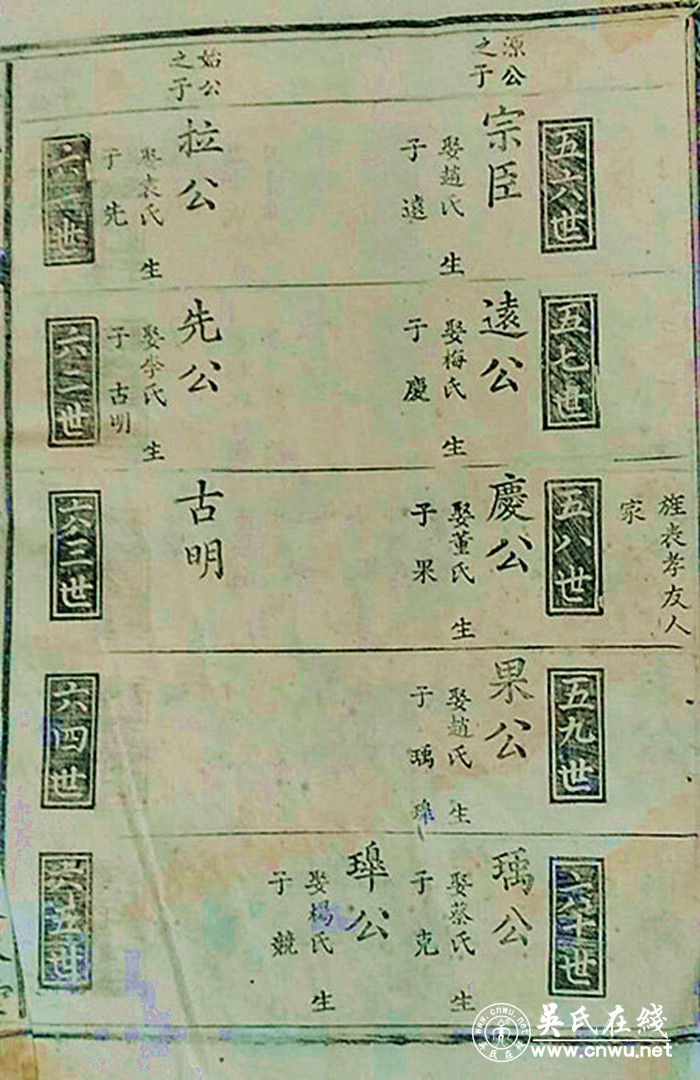 旌表孝友人
家
五六世
源公
之子
宗臣
娶趙氏 生
子 遠
五七世
遠公
娶梅氏 生
子 慶
五八世
慶公
娶董氏 生
子 果
五九世
果公
娶趙氏 生
子 瑀 琕
六十世
瑀公
娶蔡氏 生
子 克
琕公
娶楊氏 生
子 競
世
始公
之子
拉公
娶袁氏 生
子 先
六二世
先公
娶李氏 生
子 古明
六三世
古明
六四世
六五世
吳氏在綫
www.cnwu.net